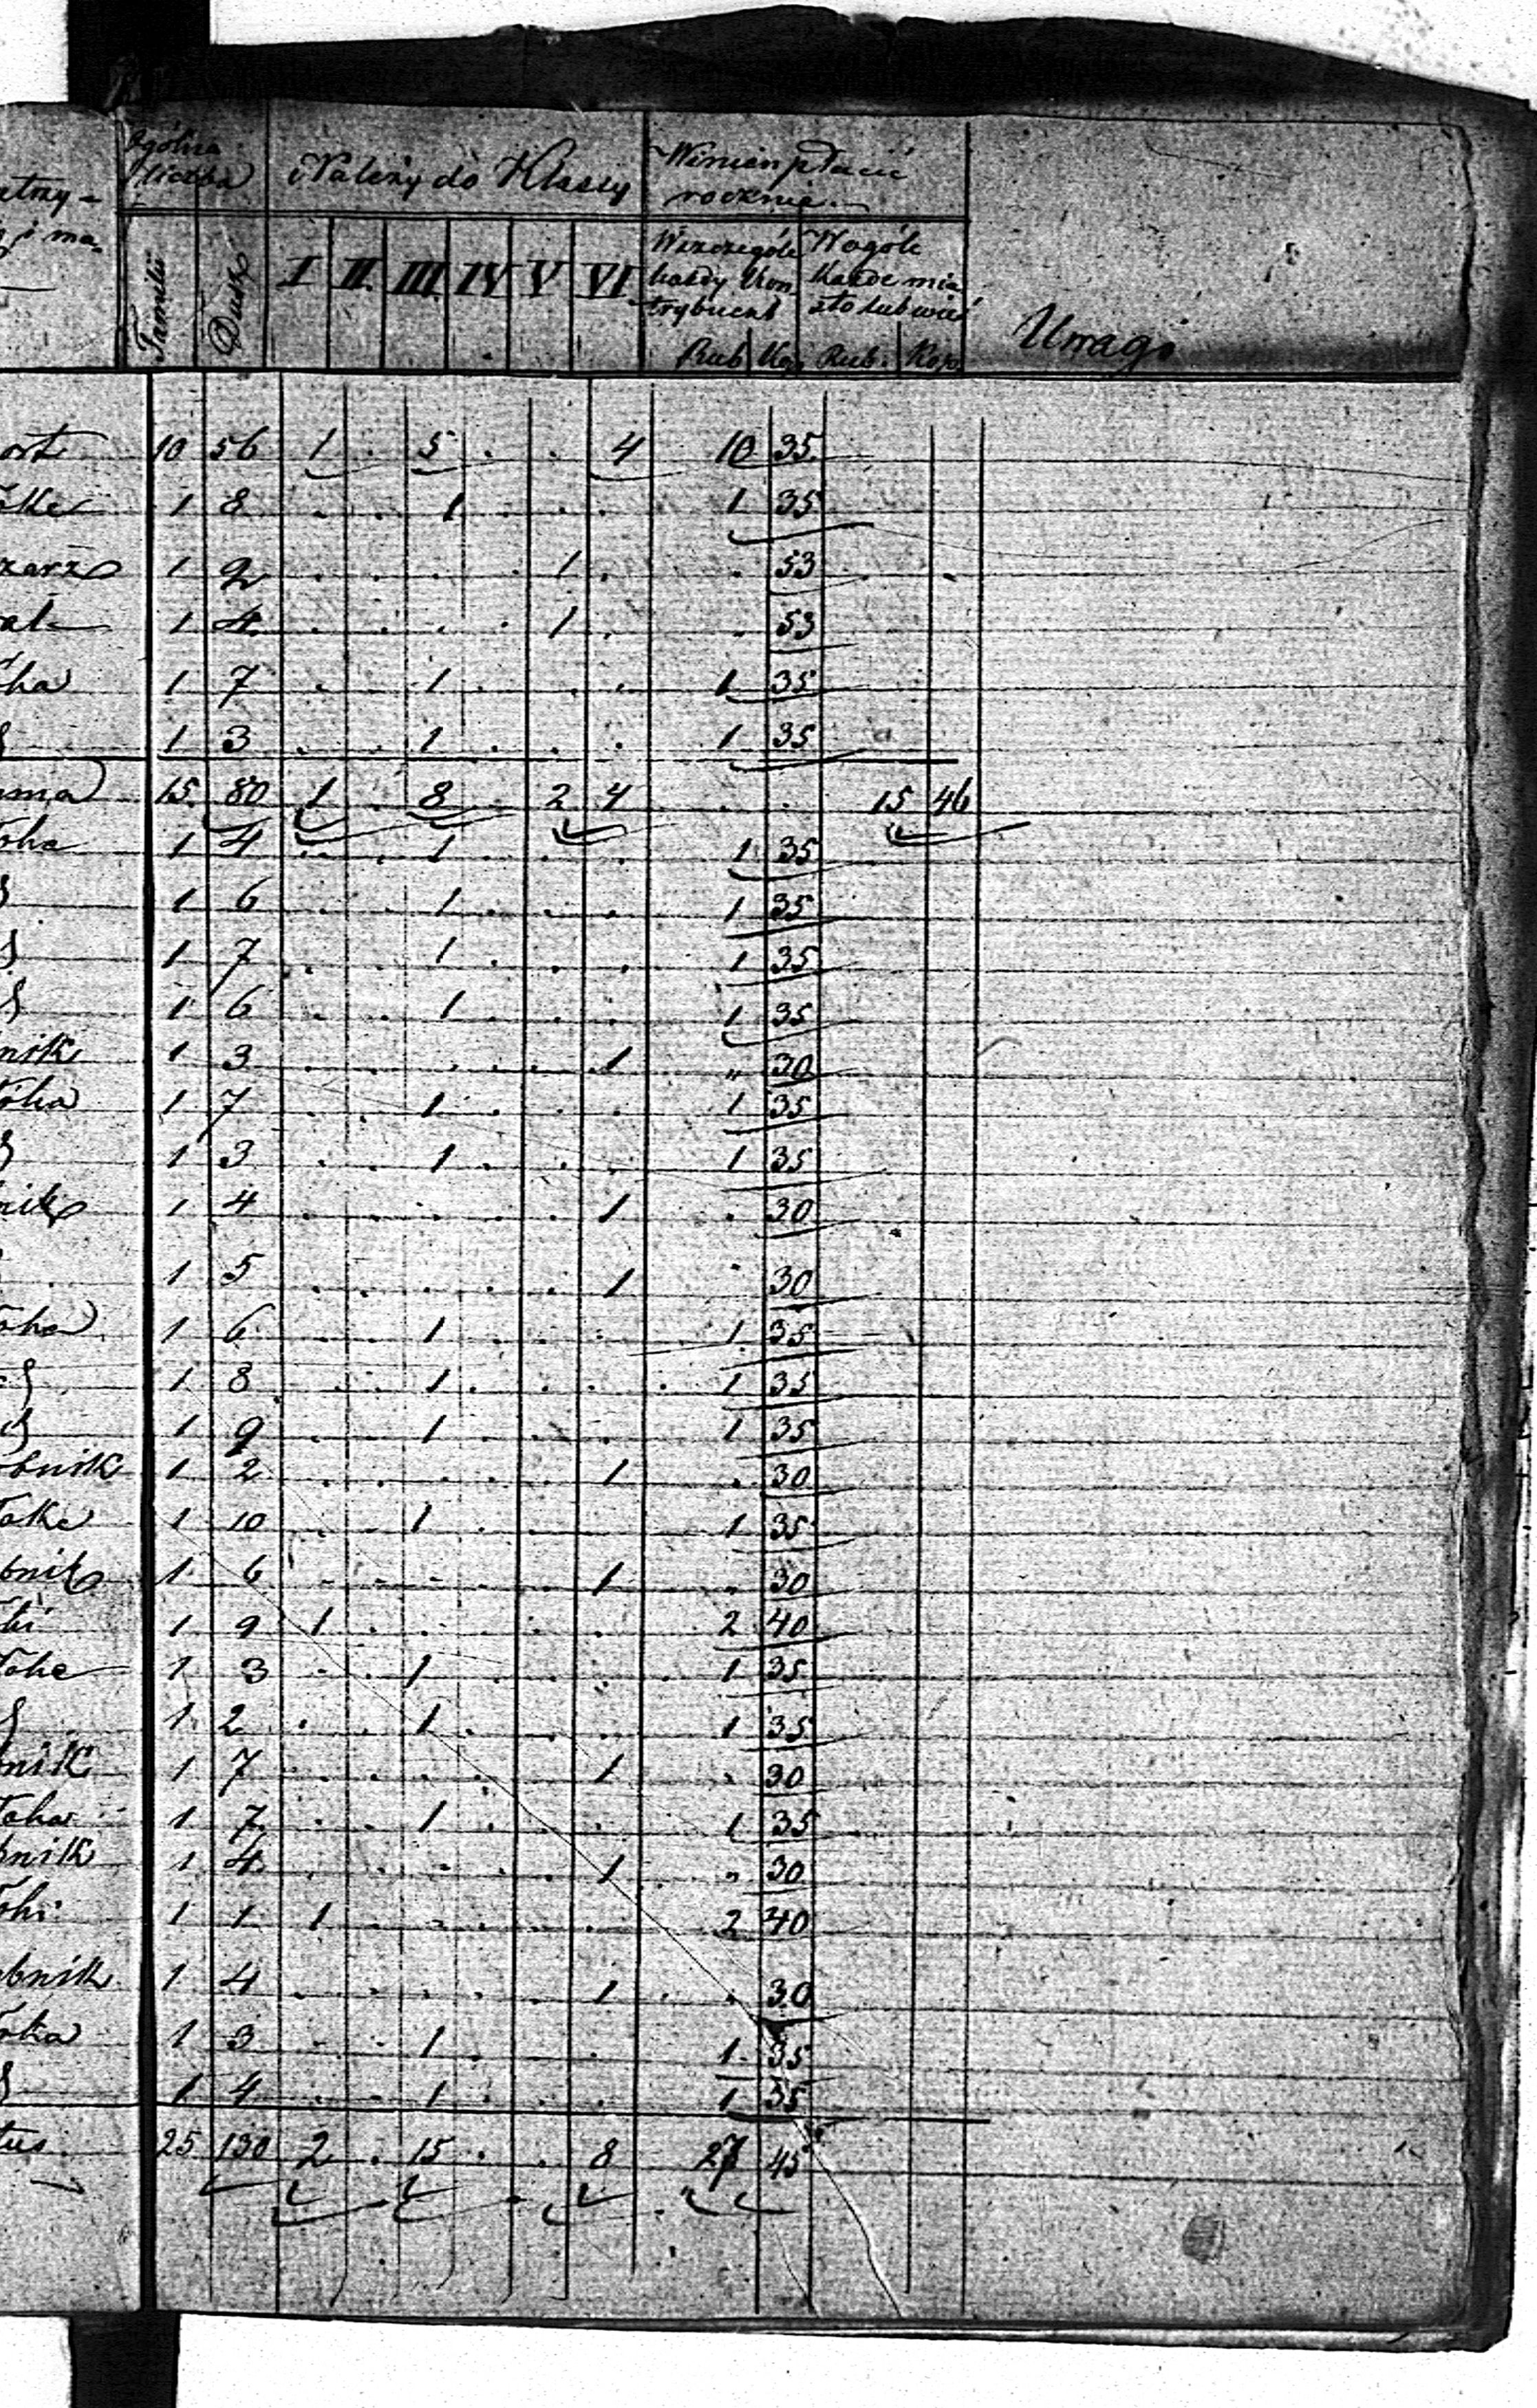 Ogólna liczba
Należy do Klassy
Winien płacić rocznie
Familii Dusz I II III IV V VI
Wszczególe każdy Kontrybuent Rub. Kop.
Wogóle każde miasto lub wieś Rub. Kop.
Uwagi
10 56 1 . 5 . . 4 10 35
1 8 . . 1 . . . 1 35
1 2 . . . . 1 . . 53
1 4 . . . . 1 . . 53
1 7 . . 1 . . . 1 35
1 3 . . 1 . . . 1 35
15 80 1 . 8 . 2 4 . . 15 46
1 4 . . 1 . . . 1 35
1 6 . . 1 . . . 1 35
1 7 . . 1 . . . 1 35
1 6 . . 1 . . . 1 35
nik 1 3 . . . . . 1 " 30
1 7 . . 1 . . . 1 35
1 3 . . 1 . . . 1 35
nik 1 4 . . . . . 1 . 30
1 5 . . . . . 1 30
1 6 . . 1 . . . 1 35
1 8 . . 1 . . . 1 35
1 9 . . 1 . . . 1 35
obnik 1 2 . . . . . 1 . 30
1 10 . . 1 . . . 1 35
bnik 1 6 . . . . . 1 " 30
1 9 1 . . . . . 2 40
1 3 . . 1 . . . 1 35
1 2 . . 1 . . . 1 35
nik 1 7 . . . . . 1 . 30
1 7 . . 1 . . . 1 35
bnik 1 4 . . . . . 1 " 30
1 1 1 . . . . . 2 40
obnik 1 4 . . . . . 1 . 30
1 3 . . 1 . . . 1 35
1 4 . . 1 . . . 1 35
tus 25 130 2 . 15 . . 8 27 45